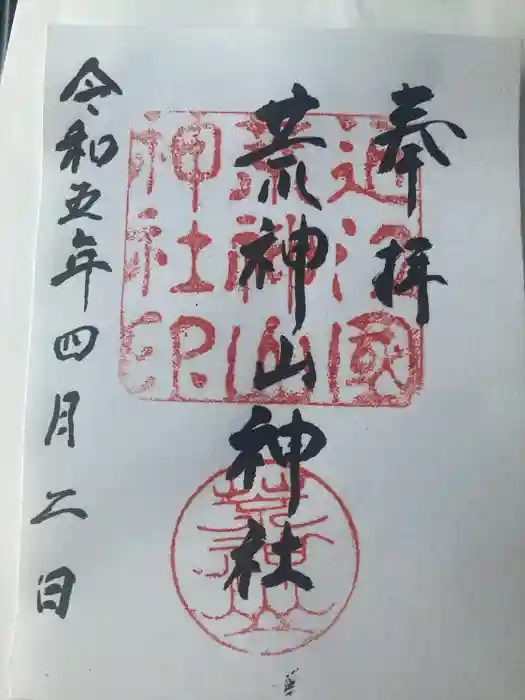 奉拝
荒神山神社
令和五年四月二日
近江國
荒神山
神社印